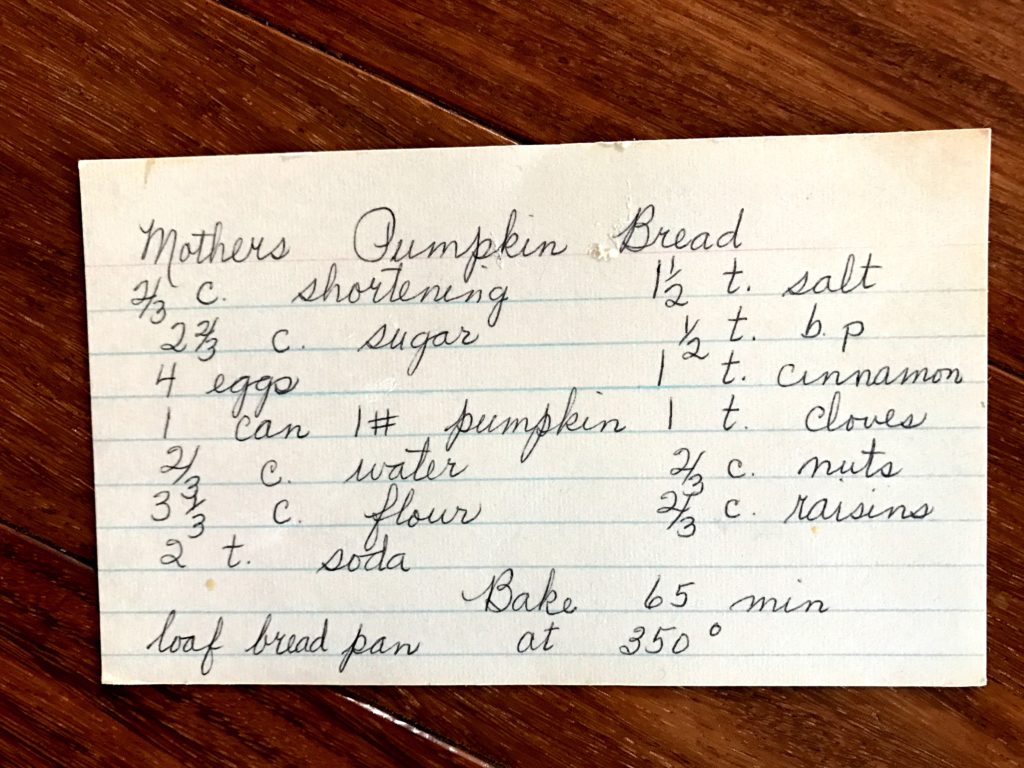 Mothers Pumpkin Bread
2/3 c. shortening
2 2/3 c. sugar
4 eggs
1 can 1# pumpkin
2/3 c. water
3 1/3 c. flour
2 t. soda
1 1/2 t. salt
1/2 t. b.p
1 t. cinnamon
1 t. cloves
2/3 c. nuts
2/3 c. raisins
Bake 65 min
loaf bread pan at 350°